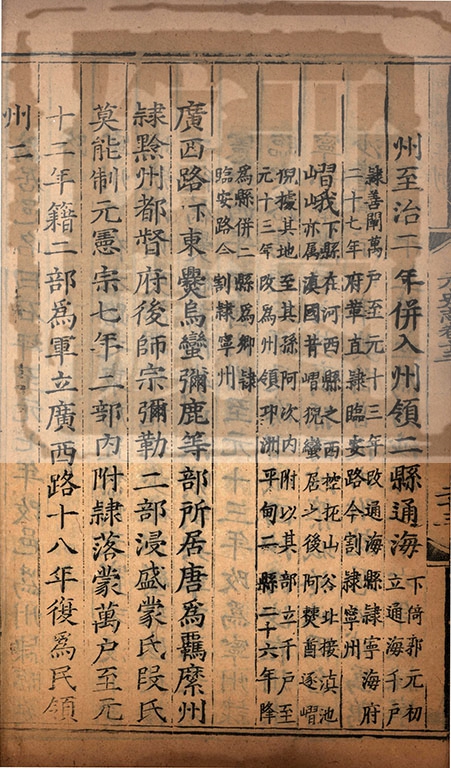 州至治二年併入州領二縣通海
下倚郭元初
立通海千戶
隸善闡萬戶至元十三年改通海縣隸寧海府
二十七年府革直隸臨安路今割隸寧州
嶍峨
下縣在河西縣之西控扼山谷北接滇池
亦屬滇國昔嶍猊蠻居之後阿僰酋逐嶍
猊據其地至其孫阿次內附以其部立千戶至
元十三年改爲州領邛洲平甸二縣二十六年降
爲縣併二縣爲鄉隸
臨安路今割隸寧州
廣西路下東爨烏蠻彌鹿等部所居唐爲羈縻州
隸黔州都督府後師宗彌勒二部浸盛蒙氏段氏
莫能制元憲宗七年二部內附隸落蒙萬户至元
十二年籍二部爲軍立廣西路十八年復爲民領
州二